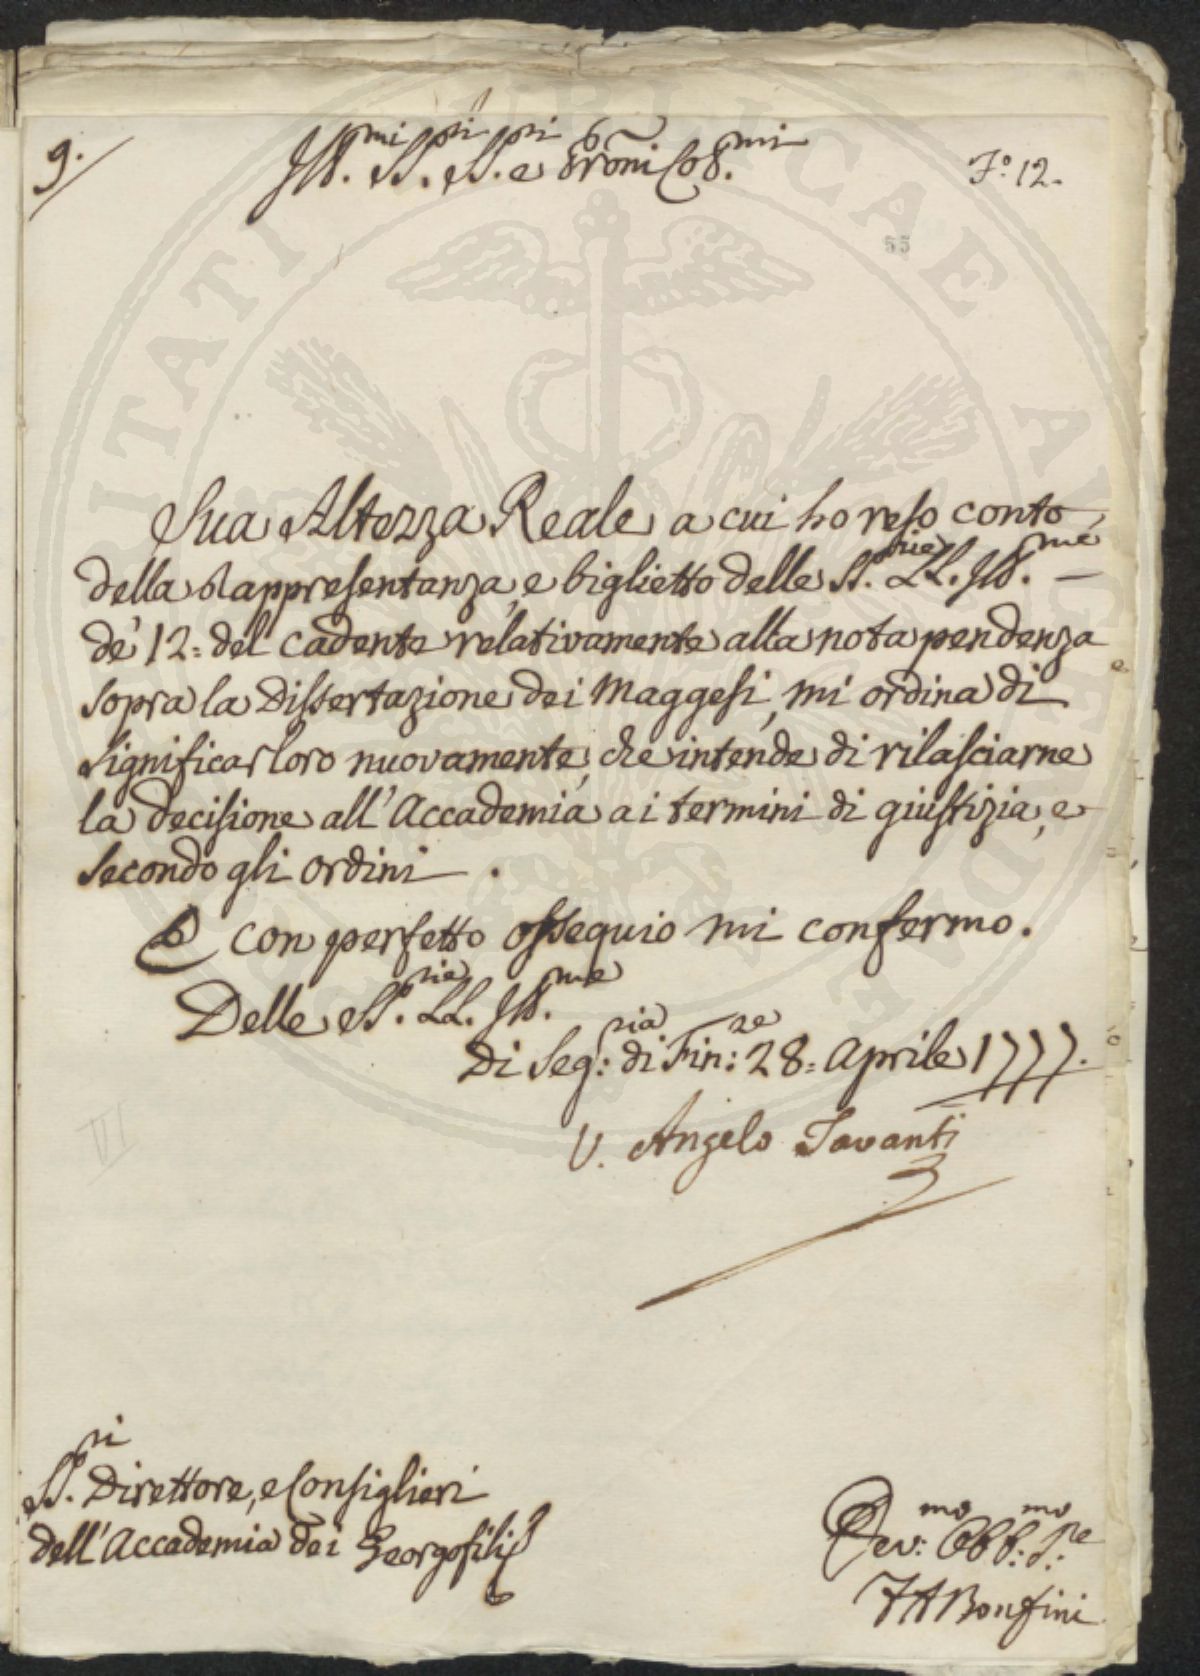 9.
Ill.mi SS.ri SS.ri e Proñi Col.mi
F.o 12.
55
Sua Altezza Reale a cui ho reso conto
della Rappresentanza, e biglietto delle SS.rie LL. Ill.me
de' 12= del cadente relativamente alla nota pendenza
sopra la Dissertazione dei Maggesi, mi ordina di
significar loro nuovamente, che intende di rilasciarne
la decisione all'Accademia a i termini di giustizia, e
secondo gli ordini.
E con perfetto ossequio mi confermo.
Delle SS.rie LL. Ill.me
Di Seg:ria di Fin:ze 28= Aprile 1777.
V. Angelo Tavanti
VI
SS.ri Direttore, e Consiglieri
dell'Accademia dei Georgofili
Dev:mo Obb:mo S:re
FA Bonfini